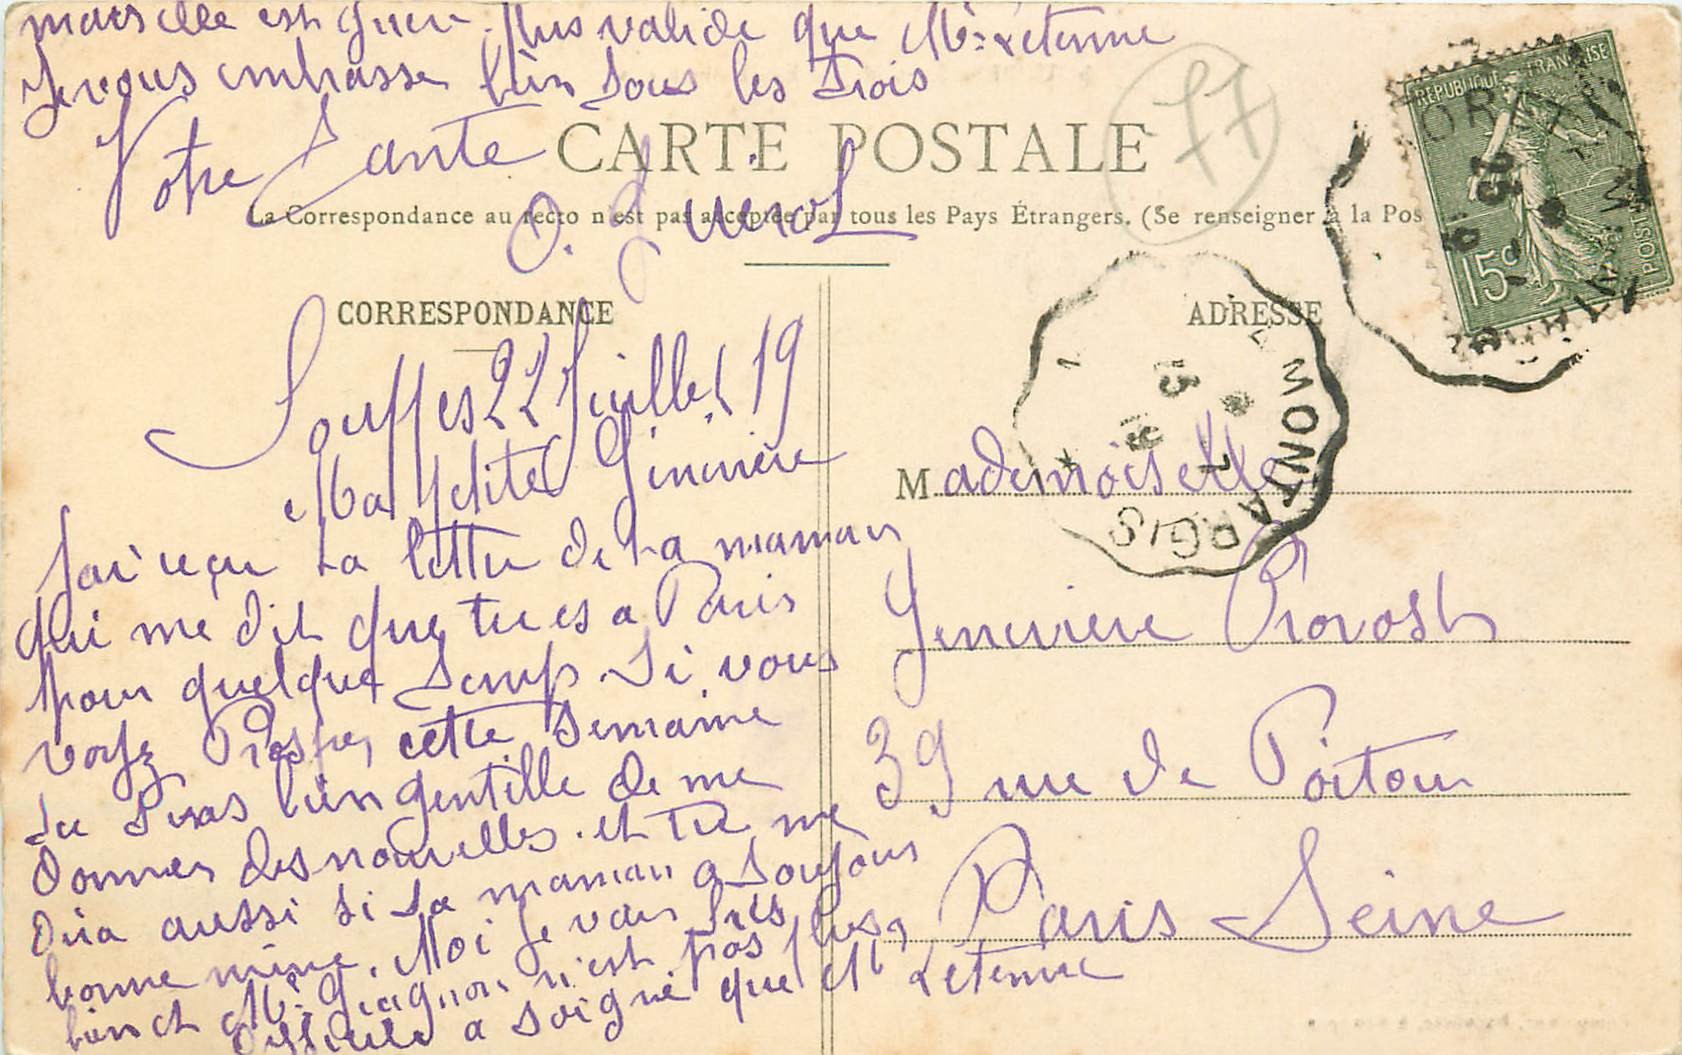 marseille est guere plus valide que Mr Letenne
Je vous embrasse bien tous les trois
Votre Tante
CARTE POSTALE
77
La Correspondance au recto n'est pas acceptée par tous les Pays Étrangers. (Se renseigner à la Pos
RÉPUBLIQUE FRANÇAISE
15c
POSTES
CORRESPONDANCE
ADRESSE
MONTARGIS
Souppes 22 Juillet 19
Ma petite Geneviève
J'ai reçu ta lettre de ta maman
qui me dit que tu es a Paris
pour quelque temps si vous
voyez Prosper cette semaine
tu seras bien gentille de me
donner des nouvelles et tu me
dira aussi si ta maman a toujours
bonne mine. Moi je vais très
bien et Mr Gagnon n'est pas plus
difficile a soigné que Mr Letenne
Mademoiselle
Genevieve Provost
39 rue de Poitou
Paris Seine